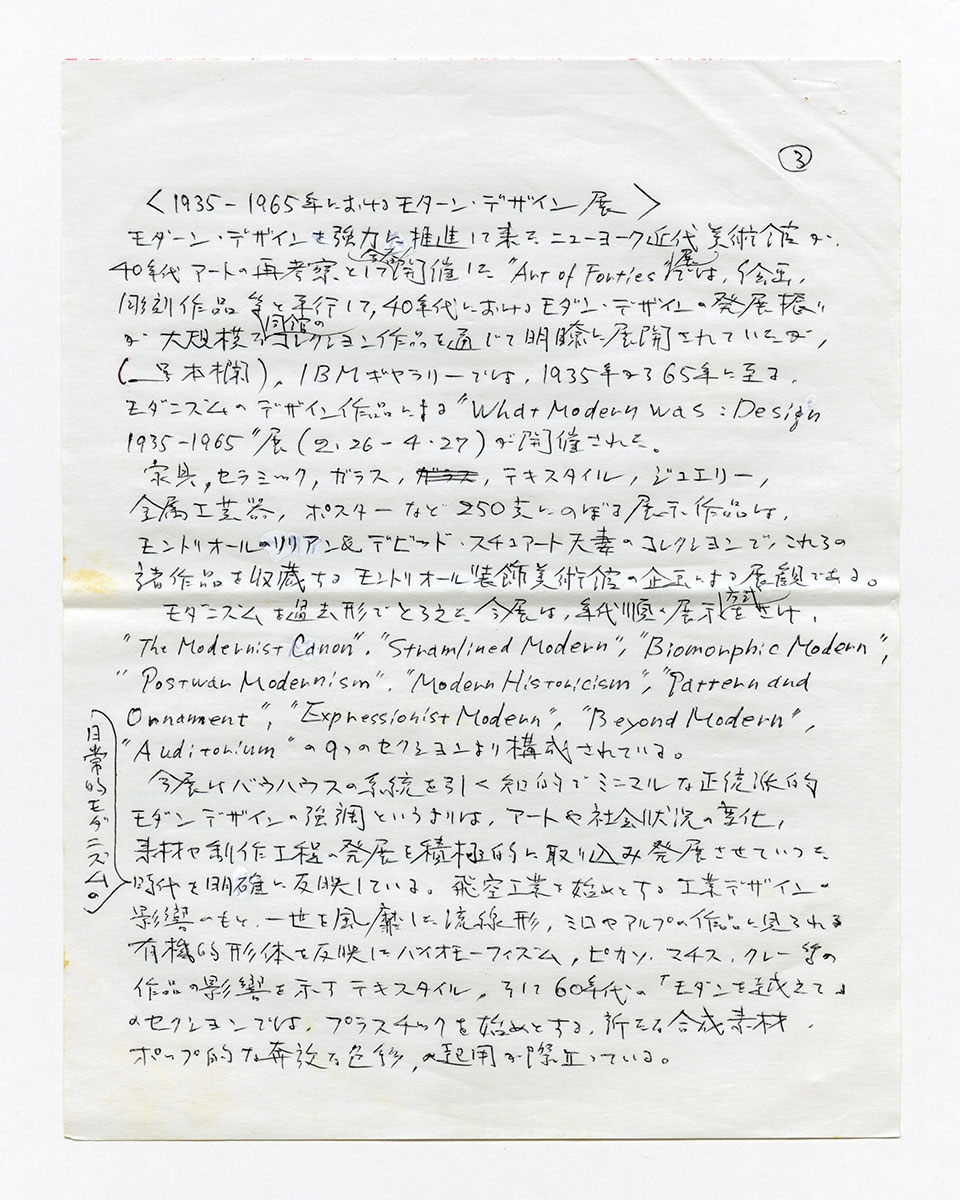 ③
〈1935-1965年におけるモダーン・デザイン展〉
モダーン・デザインを強力に推進して来たニューヨーク近代美術館が、
40年代アートの再考察として今春開催した"Art of Forties"展では、絵画、
彫刻作品等と平行して、40年代におけるモダン・デザインの発展振り
が大規模な同館のコレクション作品を通じて明瞭に展開されていたが、
(_号本欄)、IBMギャラリーでは、1935年から65年に至る、
モダニズムのデザイン作品による"What Modern was : Design
1935-1965"展(2.26-4.27)が開催された。
家具,セラミック,ガラス,テキスタイル,ジュエリー,
金属工芸器,ポスターなど250点にのぼる展示作品は、
モントリオールのリリアン&デビッド・スチュアート夫妻のコレクションで、これらの
諸作品を収蔵するモントリオール装飾美術館の企画による展観である。
モダニズムを過去形でとらえた今展は、年代順の展示方式をさけ、
"The Modernist Canon", "Stramlined Modern", "Biomorphic Modern",
"Postwar Modernism", "Modern Historicism", "Pattern and
Ornament", "Expressionist Modern", "Beyond Modern",
"Auditorium"の9つのセクションより構成されている。
今展はバウハウスの系統を引く知的でミニマルな正統派的
モダンデザインの強調というよりは、アートや社会状況の変化,
素材や製作工程の発展を積極的に取り込み発展させていった
日常的モダニズムの
時代を明確に反映している。飛空工業を始めとする工業デザインの
影響のもと、一世を風靡した流線形,ミロやアルプの作品に見られる
有機的形体を反映したバイオモーフィズム,ピカソ、マチス、クレー等の
作品の影響を示すテキスタイル,そして60年代の「モダンを越えて」
のセクションでは、プラスチックを始めとする、新たな合成素材、
ポップ的な奔放な色彩,の起用が際立っている。